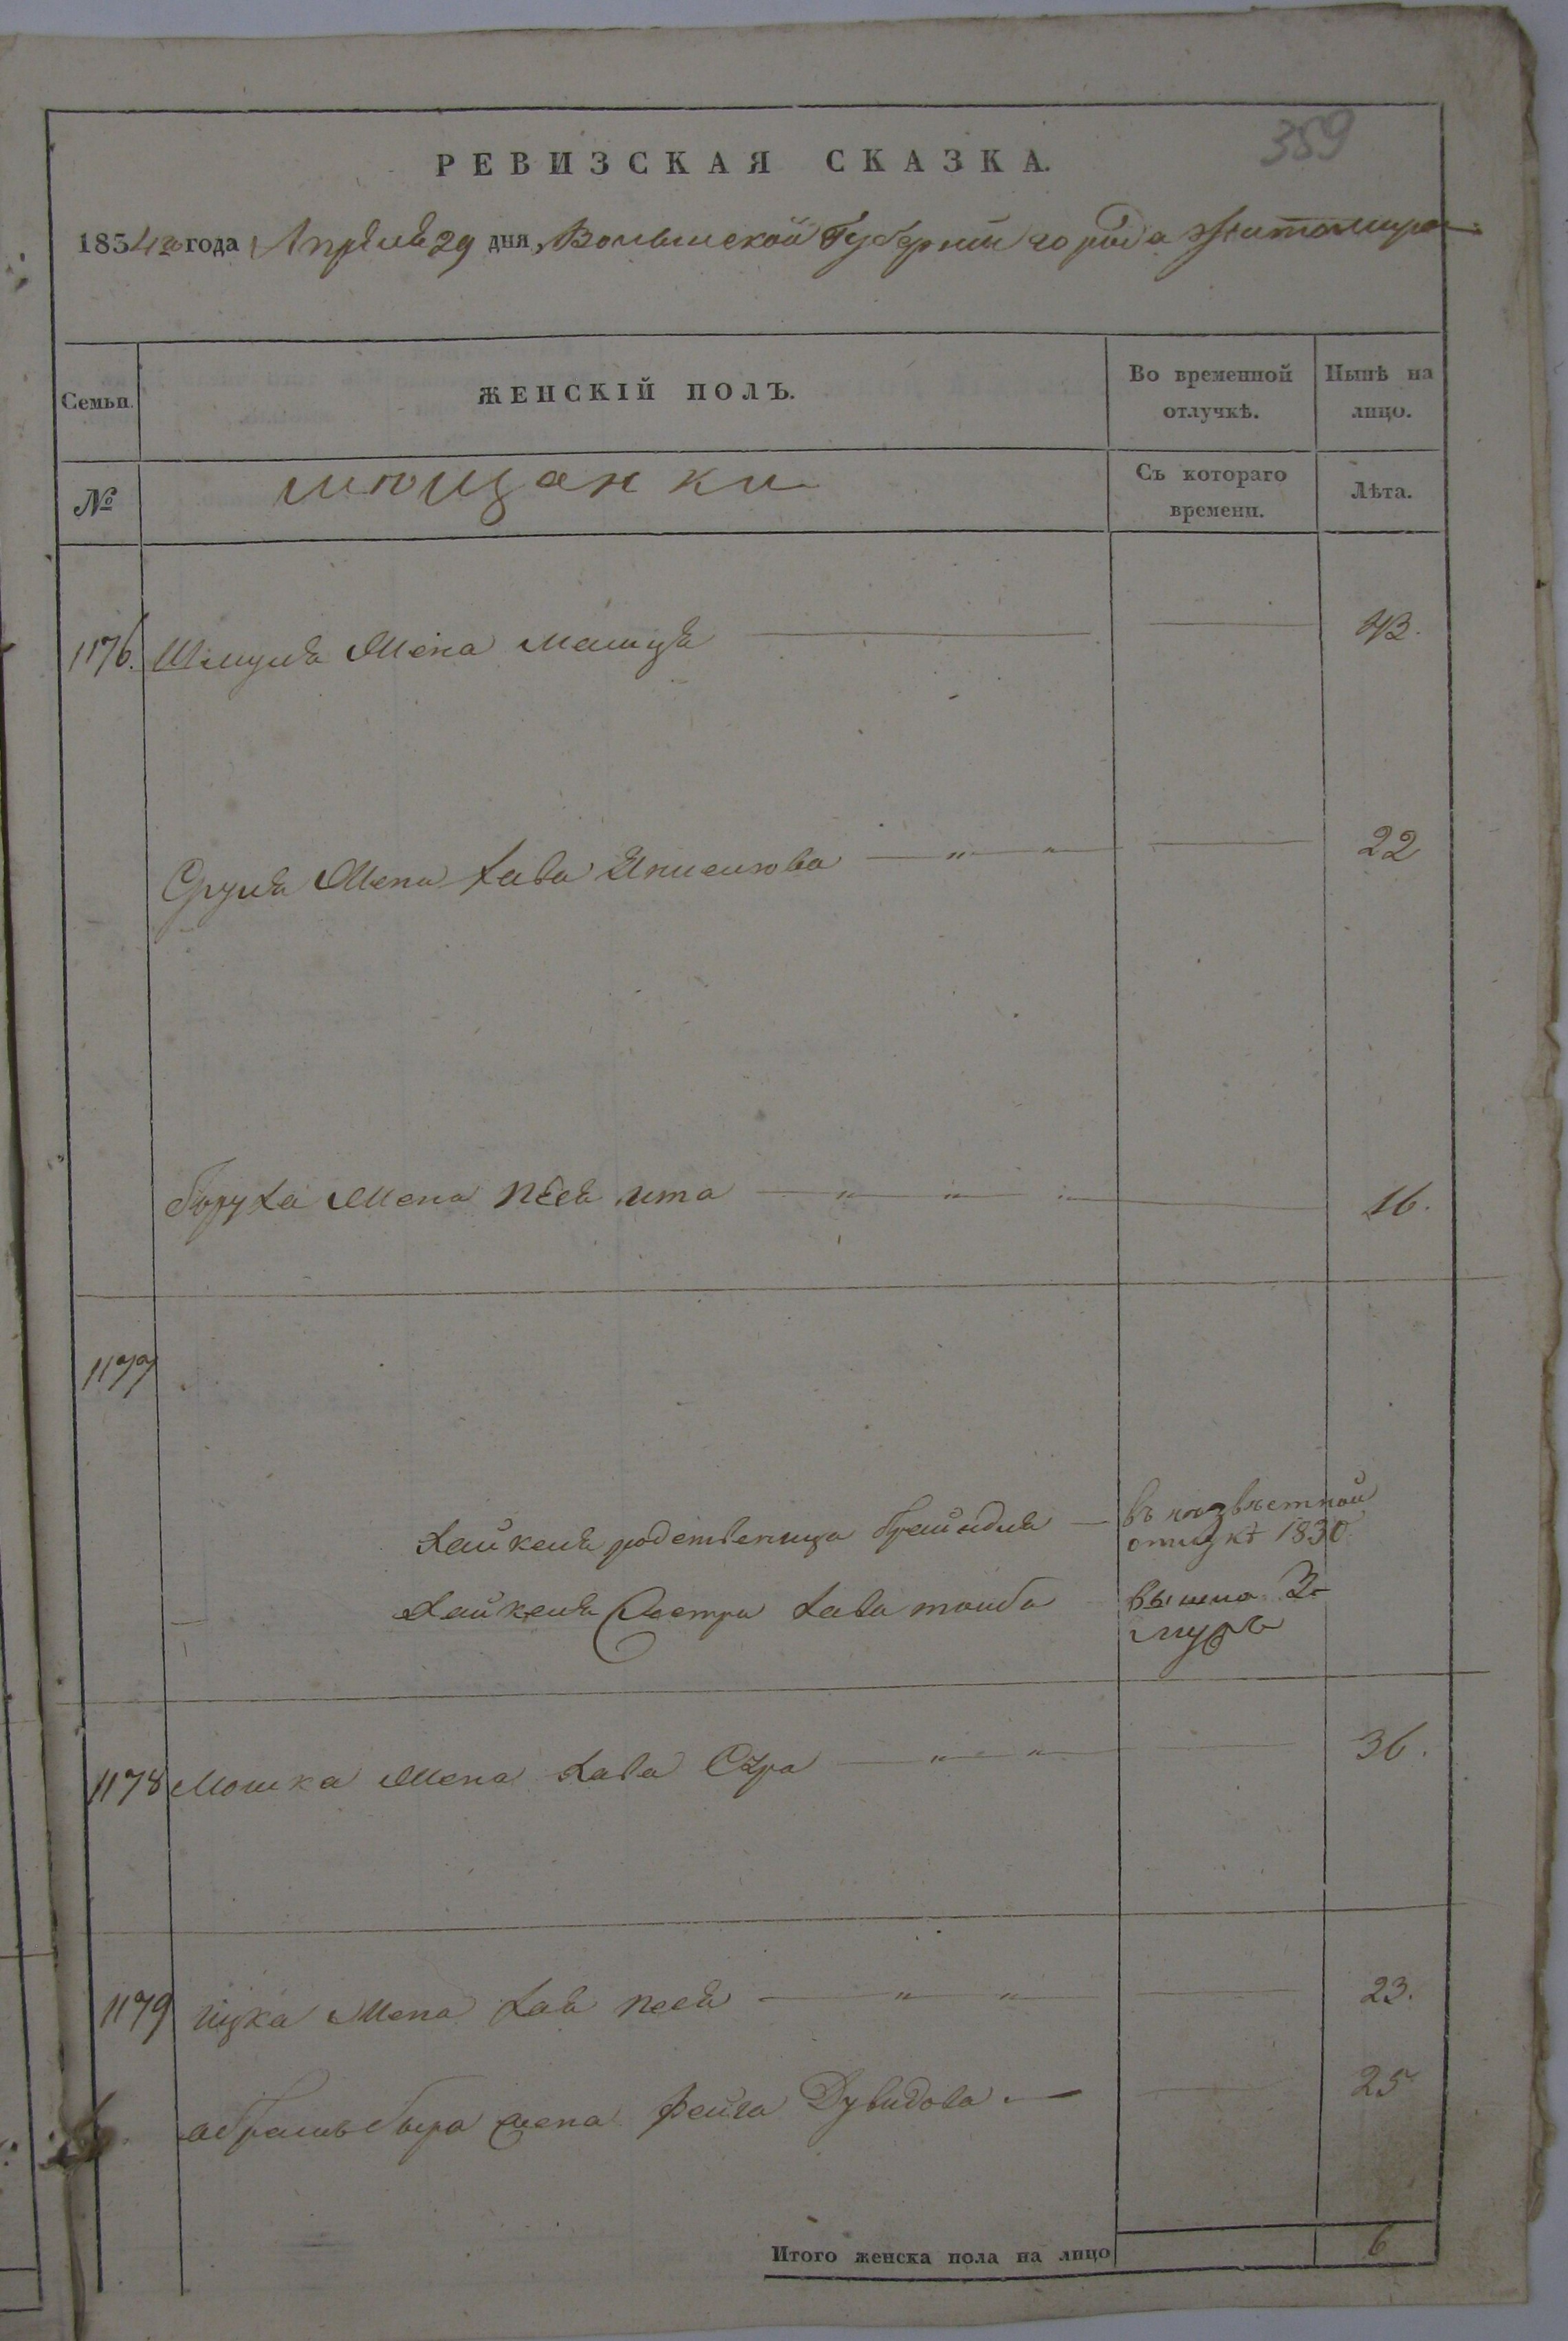 389
РЕВИЗСКАЯ СКАЗКА.
1834го года Апреля 29 дня, Волынской Губернии города Житомира
Семьи.
ЖЕНСКІЙ ПОЛЪ.
Во временной отлучкѣ.
Нынѣ на лицо.
№
мещанки
Съ котораго времени.
Лѣта.
1176. Шмуля Жена 43.
Сруля Жена Хава 22
Боруха Жена Песя ита 16.
1177
Хайкеля родственица Брайндля въ отлуке 1830
Хайкеля Сестра Хава тойба вышла За мужъ
1178 Мошка Жена Хава Сура 36.
1179 ицка Жена Хая Песя 23.
абрамъ бера жена Фейга Дувидова 25
Итого женска пола на лицо 6